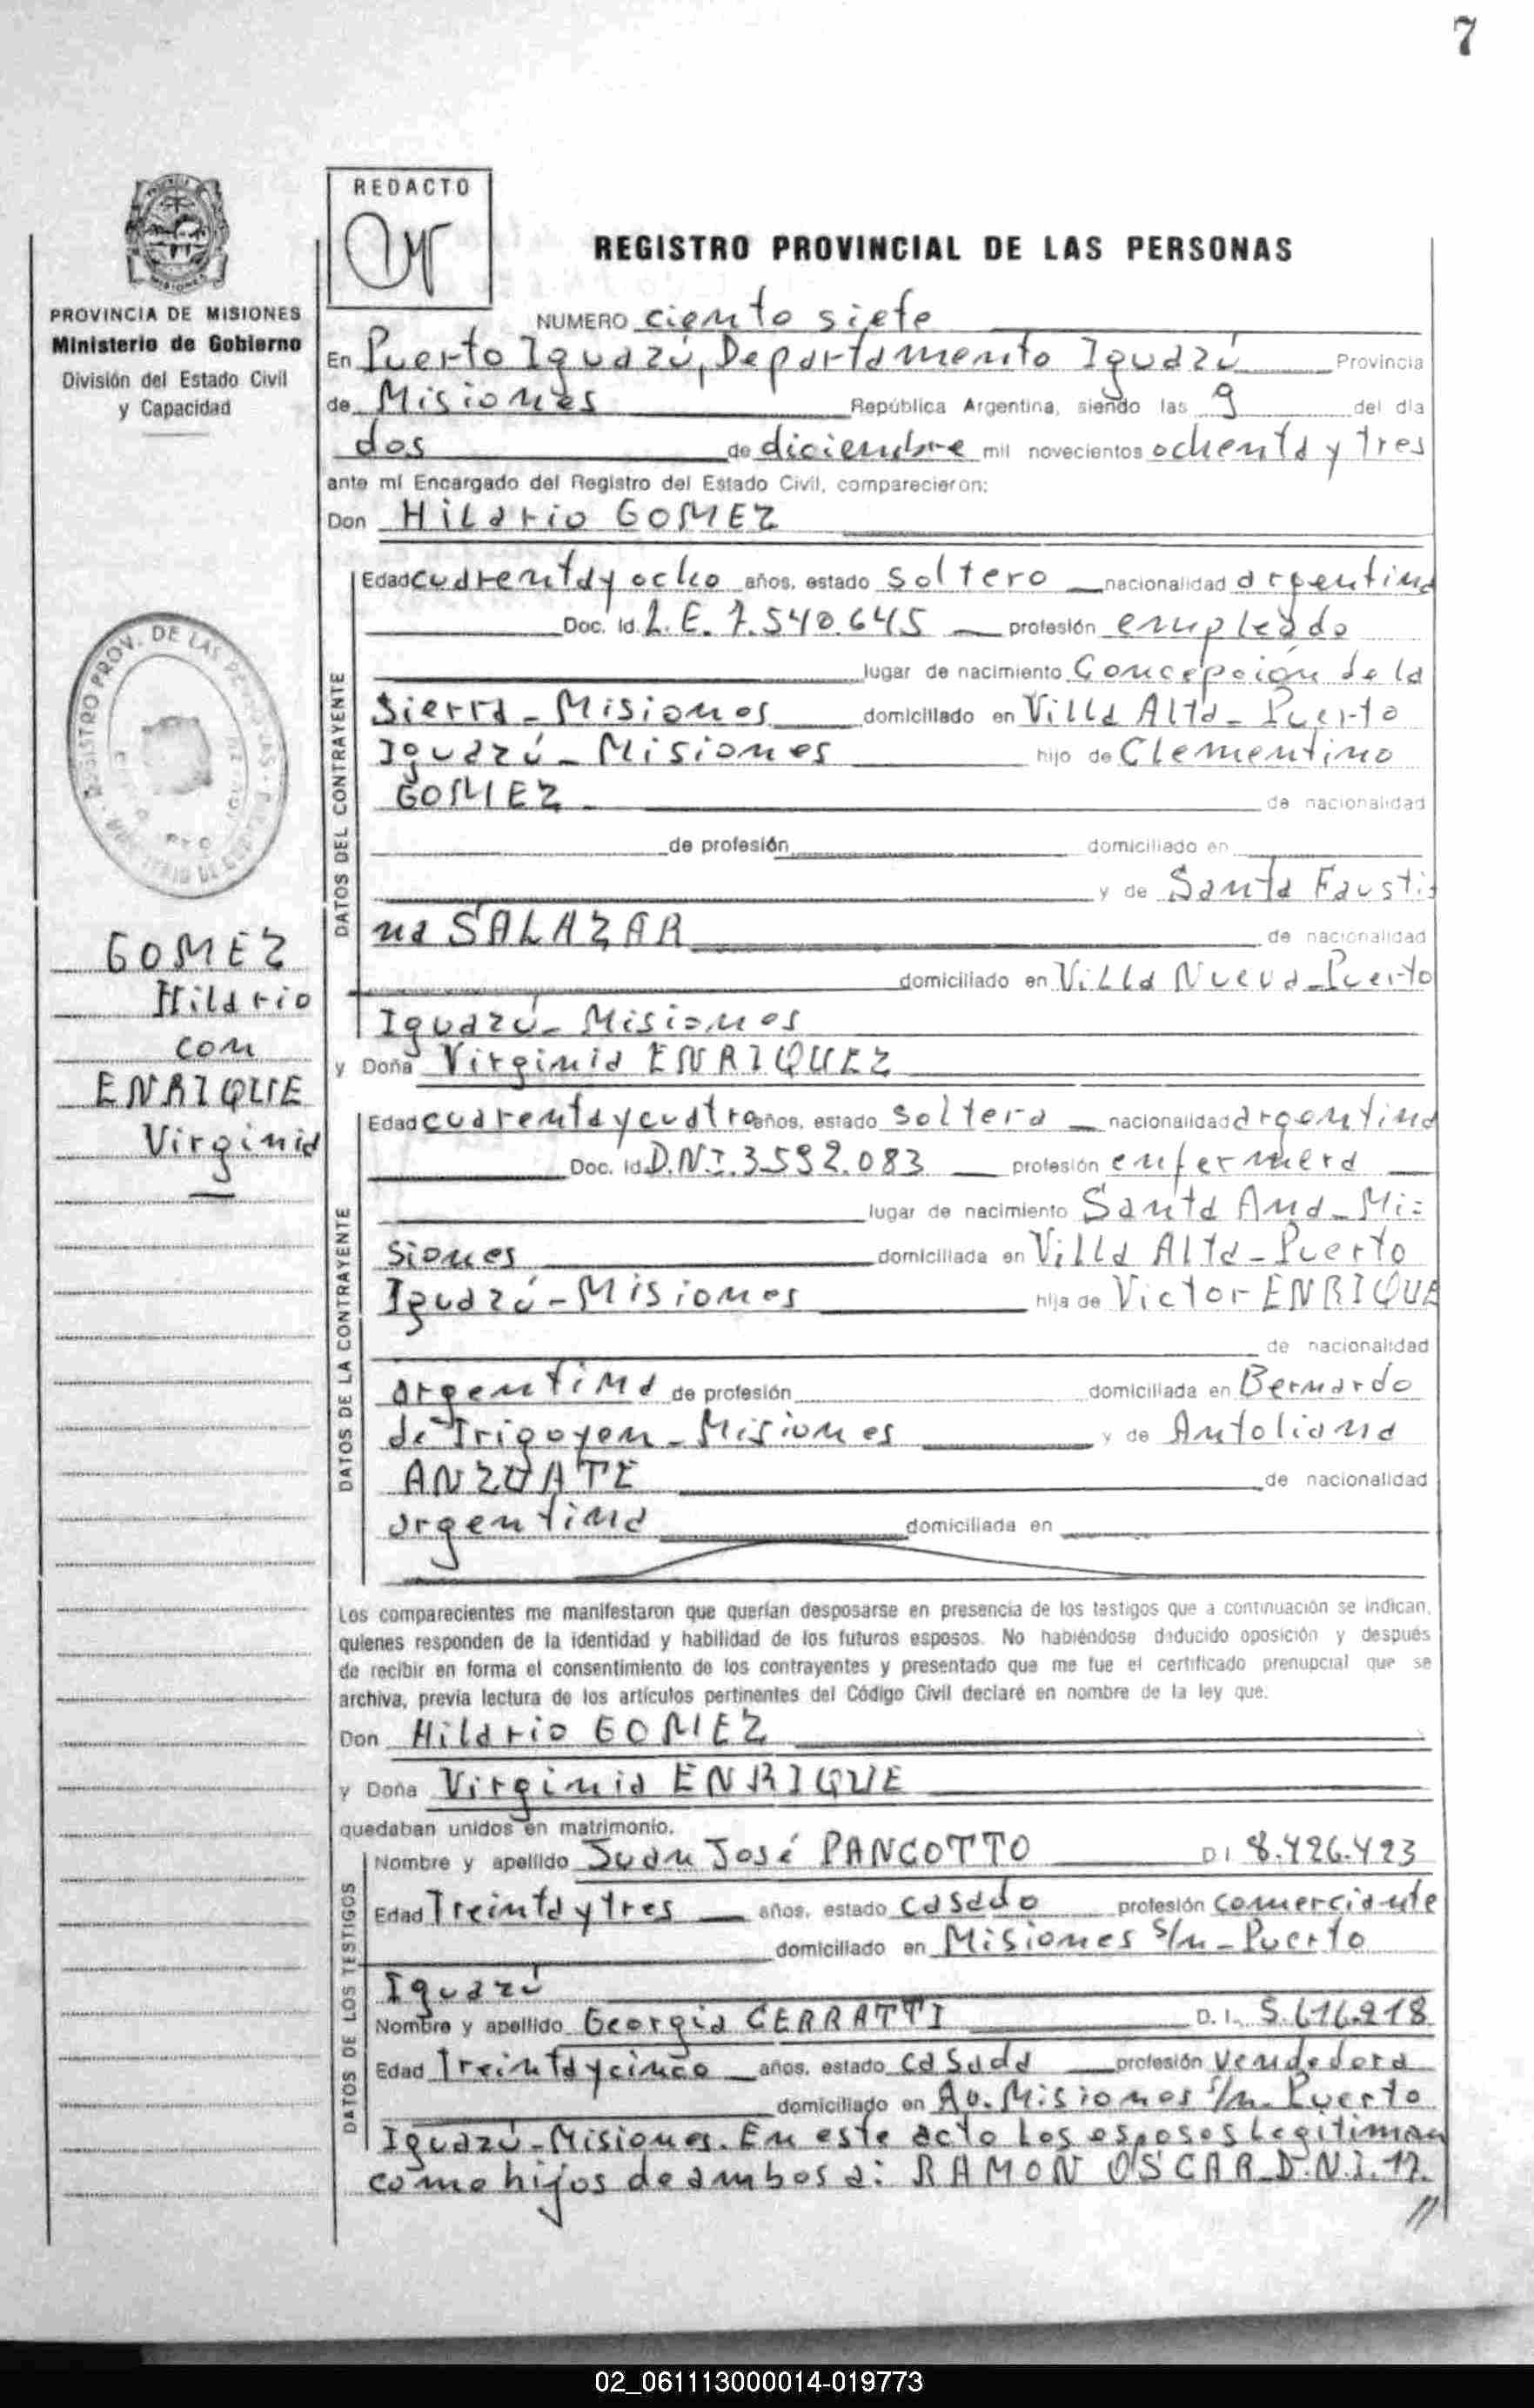 7
REDACTO
REGISTRO PROVINCIAL DE LAS PERSONAS
PROVINCIA DE MISIONES
Ministerio de Gobierno
División del Estado Civil
y Capacidad
NUMERO ciento siete
En Puerto Iguazú, Departamento Iguazú Provincia
de Misiones República Argentina, siendo las 9 del día
dos de diciembre mil novecientos ochenta y tres
ante mí Encargado del Registro del Estado Civil, comparecieron:
Don Hilario GOMEZ
DATOS DEL CONTRAYENTE
Edad cuarenta y ocho años, estado soltero nacionalidad argentina
Doc. Id. L.E. 7.540.645 profesión empleado
lugar de nacimiento Concepción de la
Sierra - Misiones domiciliado en Villa Alta - Puerto
Iguazú - Misiones hijo de Clementino
GOMEZ de nacionalidad
de profesión domiciliado en
y de Santa Fausti=
na SALAZAR de nacionalidad
domiciliado en Villa Nueva - Puerto
Iguazú - Misiones
y Doña Virginia ENRIQUEZ
GOMEZ
Hilario
con
ENRIQUE
Virginia
DATOS DE LA CONTRAYENTE
Edad cuarenta y cuatro años, estado soltera nacionalidad argentina
Doc. Id. D.N.I. 3.592.083 profesión enfermera
lugar de nacimiento Santa Ana - Mi=
siones domiciliada en Villa Alta - Puerto
Iguazú - Misiones hija de Victor ENRIQUE
de nacionalidad
argentina de profesión domiciliada en Bernardo
de Irigoyen - Misiones y de Antoliana
ANZUATE de nacionalidad
argentina domiciliada en
Los comparecientes me manifestaron que querían desposarse en presencia de los testigos que a continuación se indican,
quienes responden de la identidad y habilidad de los futuros esposos. No habiéndose deducido oposición y después
de recibir en forma el consentimiento de los contrayentes y presentado que me fue el certificado prenupcial que se
archiva, previa lectura de los artículos pertinentes del Código Civil declaré en nombre de la ley que:
Don Hilario GOMEZ
y Doña Virginia ENRIQUE
quedaban unidos en matrimonio.
DATOS DE LOS TESTIGOS
Nombre y apellido Juan José PANCOTTO D I 8.426.423
Edad Treinta y tres años, estado casado profesión comerciante
domiciliado en Misiones s/n - Puerto
Iguazú
Nombre y apellido Georgia CERRATTI D. I. 5.616.218
Edad Treinta y cinco años, estado casada profesión vendedora
domiciliado en Av. Misiones s/n - Puerto
Iguazú - Misiones. En este acto los esposos legitiman
como hijos de ambos a: RAMON OSCAR D.N.I. 17.
//
02_061113000014-019773